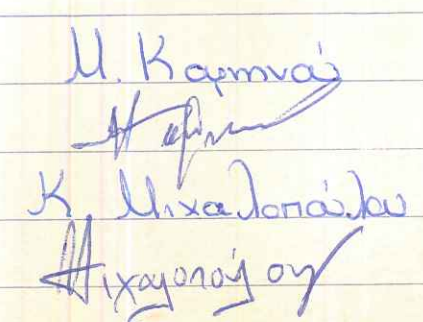 Μ. Καρπινά
Κ. Μιχαλοπούλου
Μιχαλοπούλου